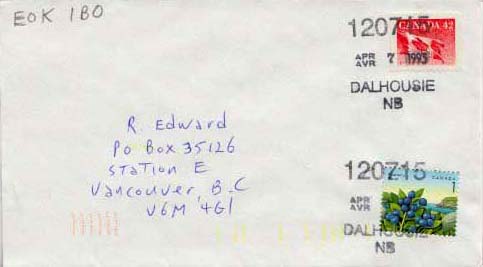 EOK 1BO
120715
CANADA 42
APR 7 1995
AVR
DALHOUSIE
NB
R. Edward
Po Box 35126
Station E
Vancouver B.C
V6M 4G1
120715
1
APR
AVR
DALHOUSIE
NB